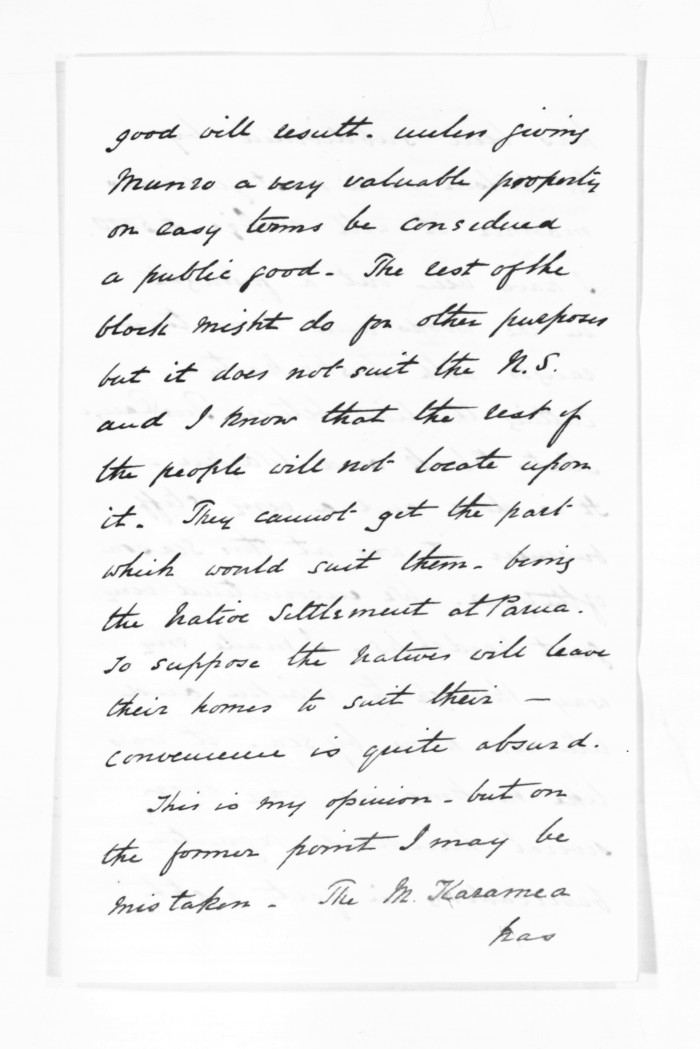 good will result. unless giving
Munro a very valuable property
on easy terms be considered
a public good. The rest of the
block might do for other purposes
but it does not suit the N.S.
and I know that the rest of
the people will not locate upon
it. They cannot get the part
which would suit them. being
the Native Settlement at Parua.
To suppose the Natives will leave
their homes to suit their —
convenience is quite absurd.
This is my opinion. but on
the former point I may be
mistaken. The M. Karamea
has